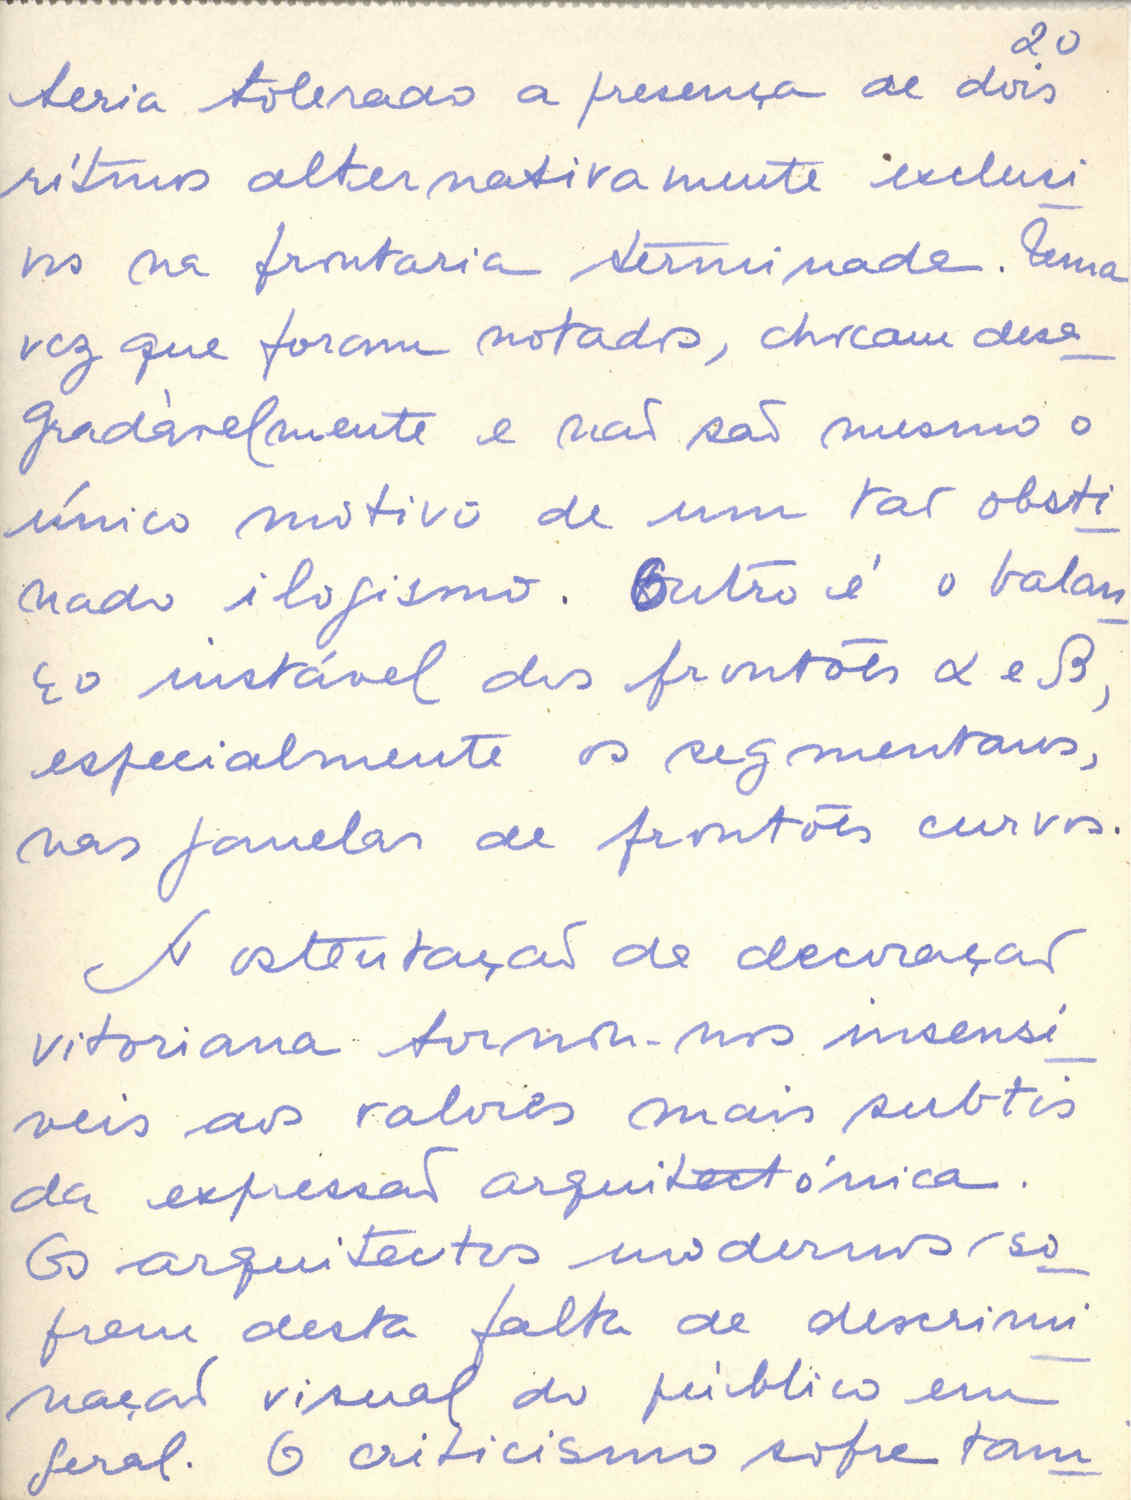 20
teria tolerado a presença de dois
rítmos alternativamente exclusi
vos na frontaria terminada. Uma
vez que foram notados, chocam desa
gradàvelmente e não são mesmo o
único motivo de um tal obsti
nado ilogismo. Outro é o balan
ço instável dos frontões α e β,
especialmente os segmentaus,
nas janelas de frontões curvos.
A ostentação de decoração
vitoriana tornou-nos insensí
veis aos valores mais subtis
da expressão arquitectónica.
Os arquitectos modernos so
frem desta falta de descrimi
nação visual do público em
geral. O criticismo sofre tam